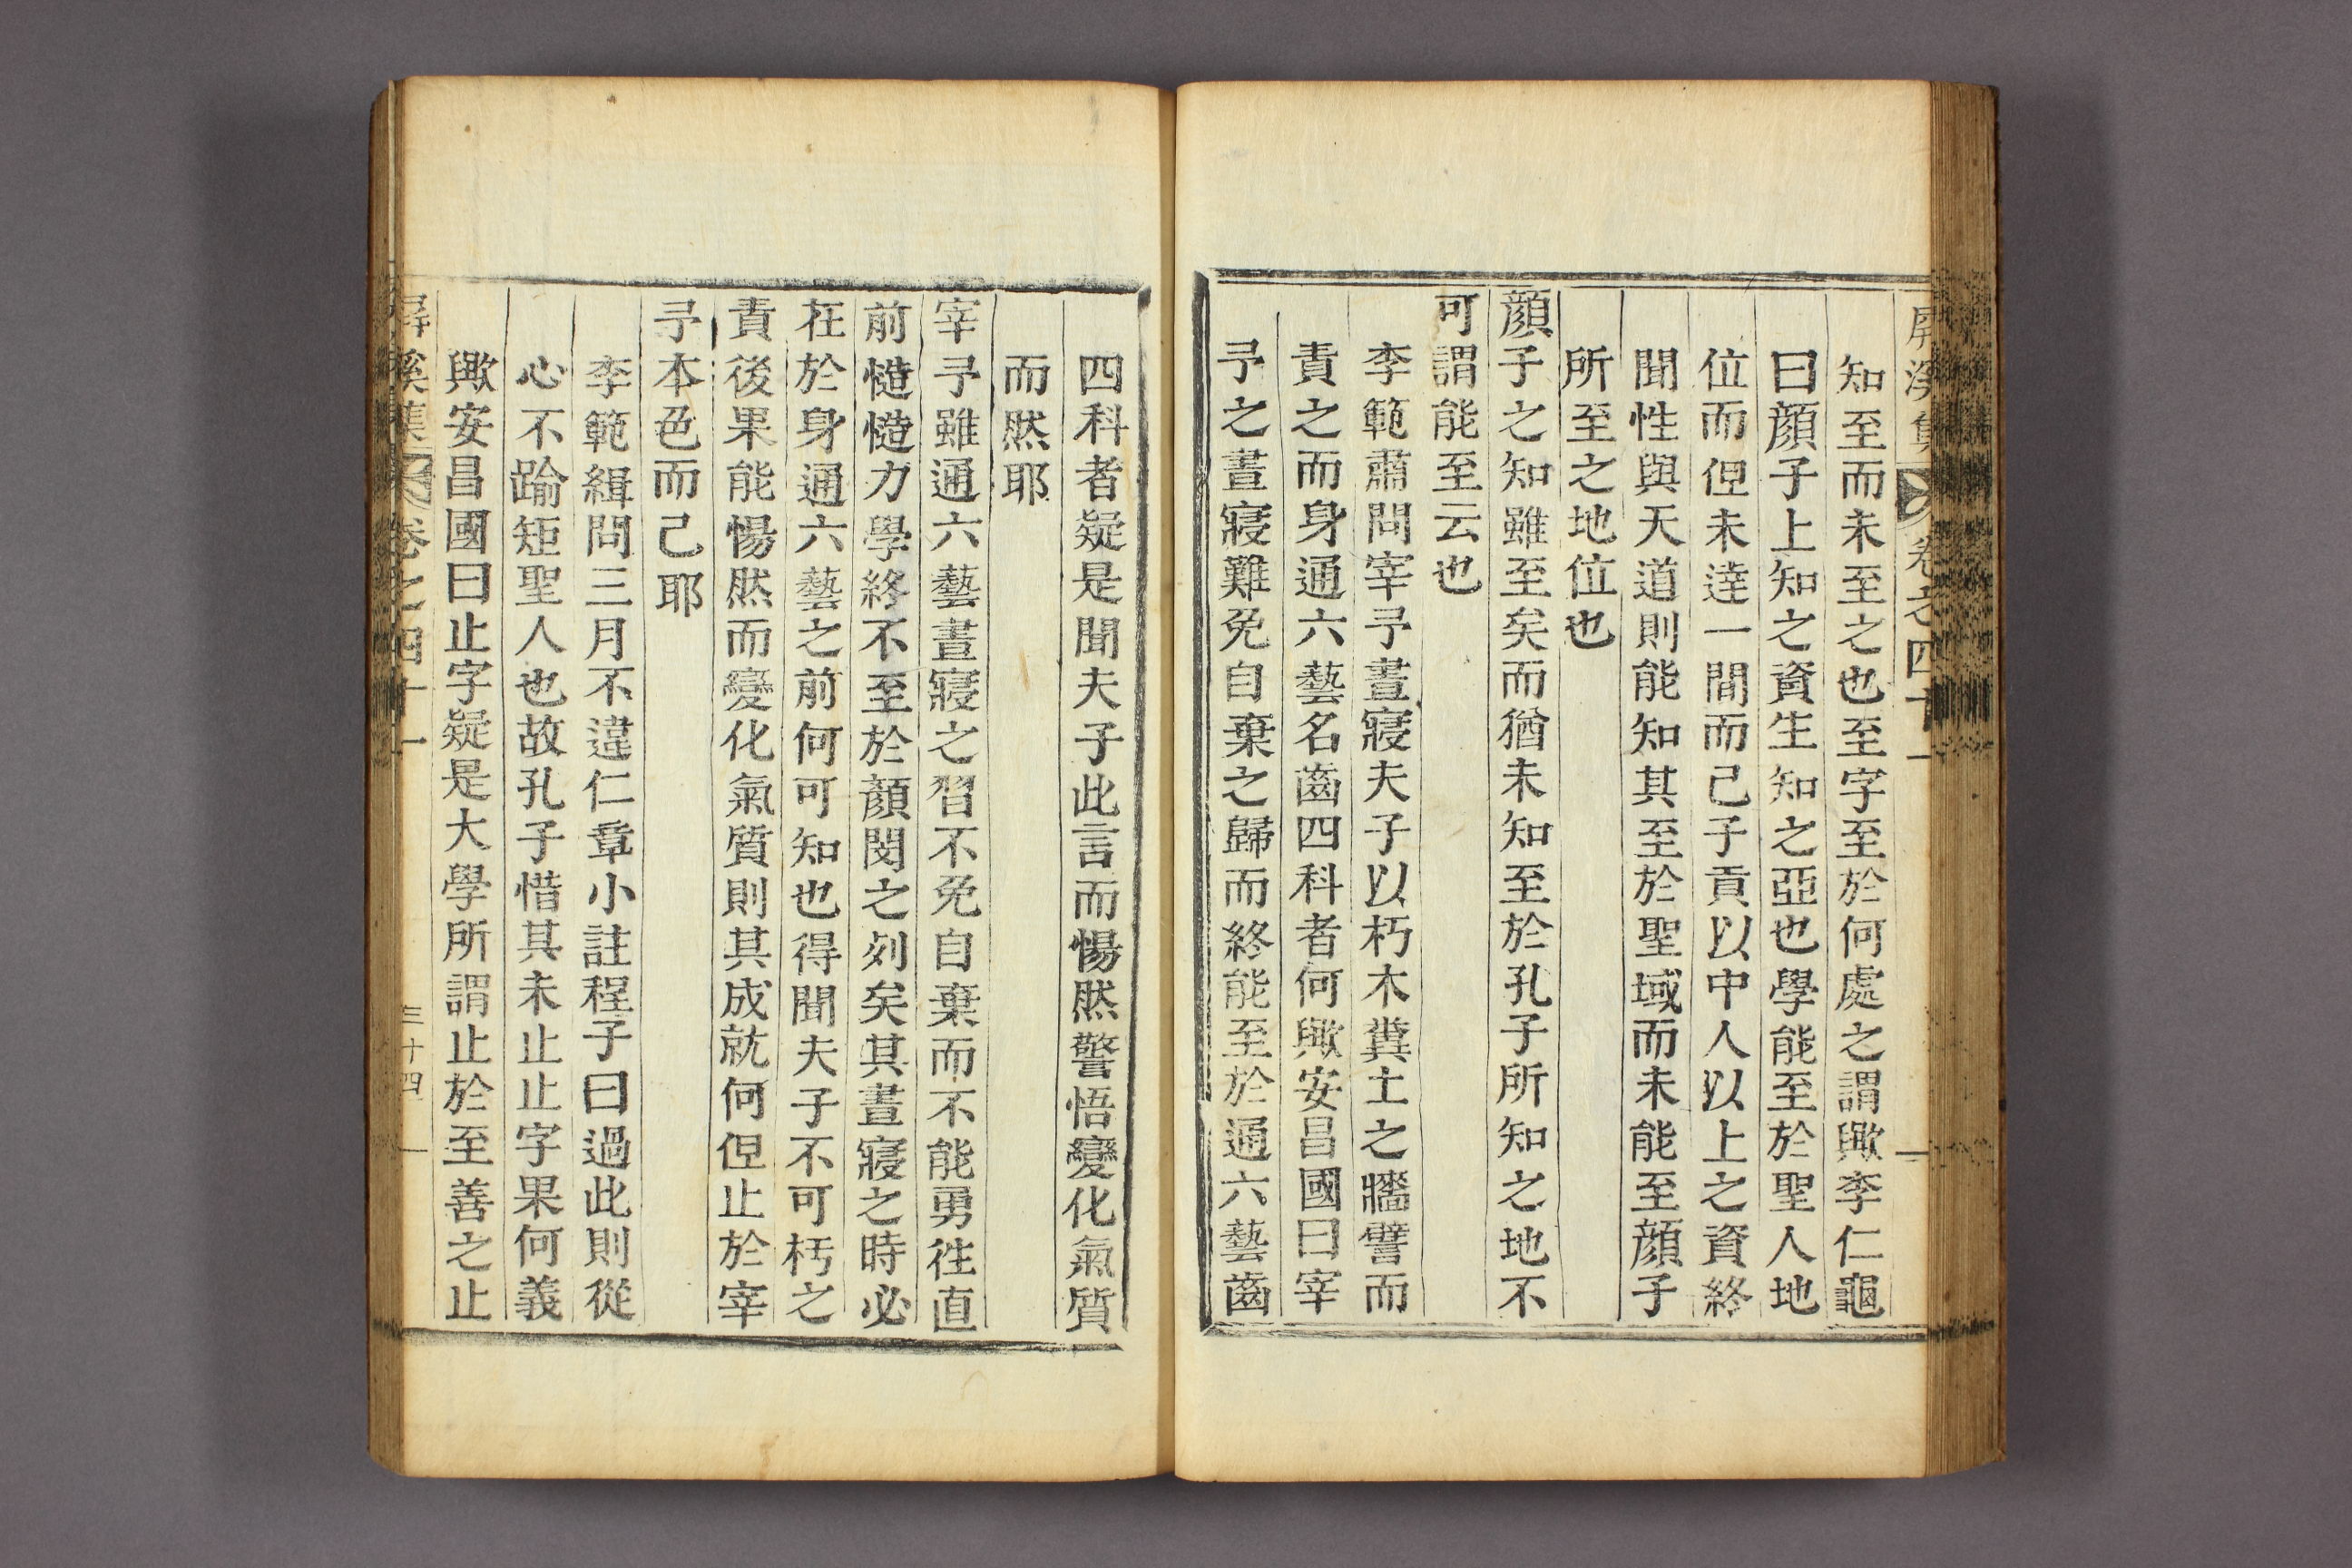 屛溪集 卷之四十一
知至而未至之也至字至於何處之謂歟李仁龜
曰顔子上知之資生知之亞也學能至於聖人地
位而但未達一間而已子貢以中人以上之資終
聞性與天道則能知其至於聖域而未能至顔子
所至之地位也
顔子之知雖至矣而猶未知至於孔子所知之地不
可謂能至云也
李範肅問宰予晝寢夫子以朽木糞土之牆譬而
責之而身通六藝名齒四科者何歟安昌國曰宰
予之晝寢難免自棄之歸而終能至於通六藝齒
四科者疑是聞夫子此言而惕然警悟變化氣質
而然耶
宰予雖通六藝晝寢之習不免自棄而不能勇徃直
前慥慥力學終不至於顔閔之列矣其晝寢之時必
在於身通六藝之前何可知也得聞夫子不可朽之
責後果能惕然而變化氣質則其成就何但止於宰
予本色而已耶
李範緝問三月不違仁章小註程子曰過此則從
心不踰矩聖人也故孔子惜其未止止字果何義
歟安昌國曰止字疑是大學所謂止於至善之止
屛溪集 卷之四十一 三十四